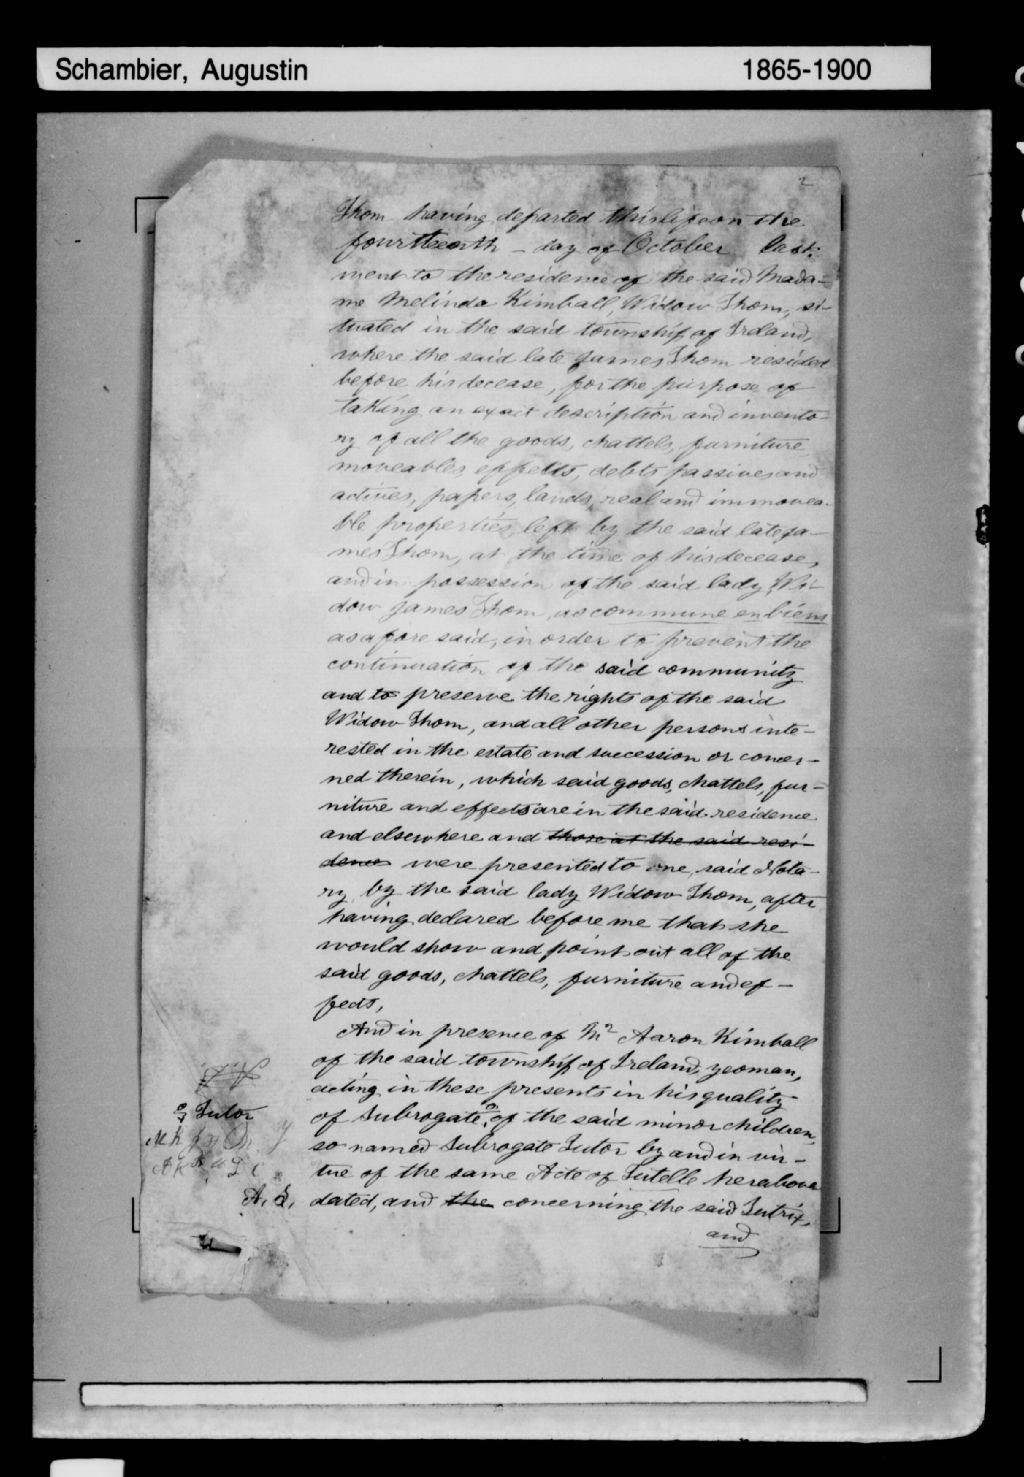 Schambier, Augustin 1865-1900
2
Thom having departed this life on the
fourteenth - day of October last,
went to the residence of the said Mada-
me Melinda Kimball, Widow Thom, si-
tuated in the said township of Ireland,
where the said late James Thom resided
before his decease, for the purpose of
taking an exact description and invento-
ry of all the goods, chattels, furniture
moveables, effects, debts passives and
actives, papers, lands, real and immovea-
ble properties left by the said late Ja-
mes Thom, at the time of his decease,
and in possession of the said lady Wi-
dow James Thom, as commune en biens
as afore said, in order to prevent the
continuation of the said community
and to preserve the rights of the said
Widow Thom, and all other persons inte-
rested in the estate and succession or concer-
ned therein, which said goods, chattels, fur-
niture and effects are in the said residence
and elsewhere and those at the said resi-
dence were presented to me, said Nota-
ry, by the said lady Widow Thom, after
having declared before me that she
would show and point out all of the
said goods, chattels, furniture and ef-
fects,
And in presence of Mr Aaron Kimball
of the said township of Ireland, yeoman,
acting in these presents in his quality
of Subrogate of the said minor children,
Tutor
so named Subrogate Tutor by and in vir-
tue of the same Acte of Tutelle herabove
A. S.
dated, and the concerning the said Tutrix,
and